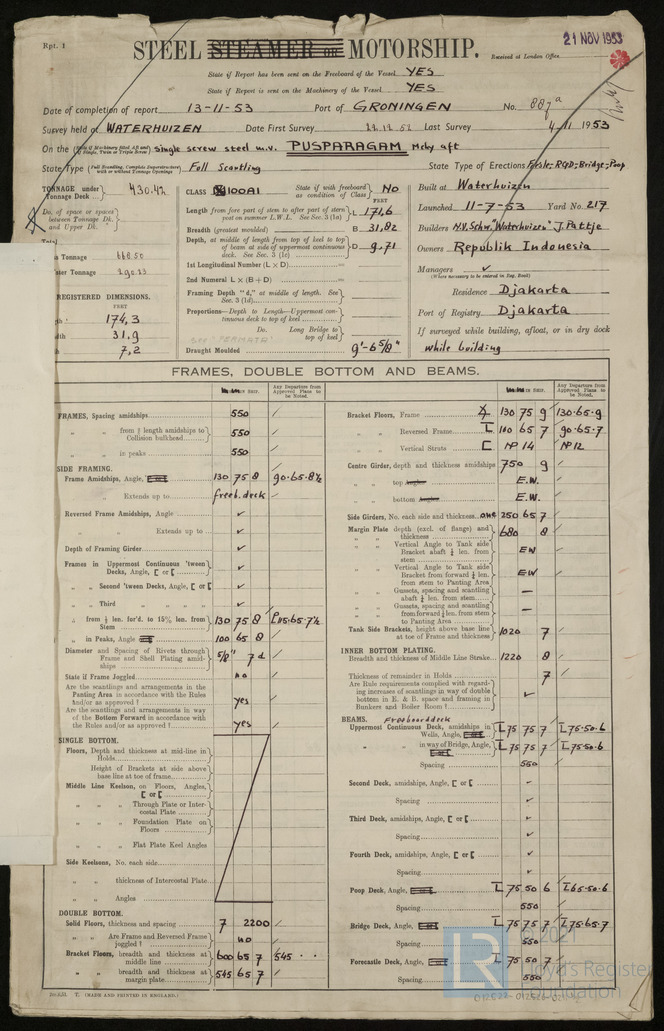 Rpt. 1
21 NOV 1953
STEEL STEAMER OR MOTORSHIP.
Received at London Office
State if Report has been sent on the Freeboard of the Vessel YES
State if Report is sent on the Machinery of the Vessel YES
Date of completion of report 13-11-53 Port of GRONINGEN No. 887a
Survey held at WATERHUIZEN Date First Survey Last Survey 4-11 1953
On the single screw steel m.v. PUSPARAGAM Mchy aft
State Type Full Scantling State Type of Erections Fcsle, RQD, Bridge, Poop
TONNAGE under Tonnage Deck 430.42
Do. of space or spaces between Tonnage Dk. and Upper Dk.
Total
Tonnage 668.50
Tonnage 290.83
REGISTERED DIMENSIONS.
FEET
174,3
31.9
7,2
CLASS 100A1 State if with freeboard as condition of Class No
FEET
Length from fore part of stem to after part of stern post on summer L.W.L. See Sec. 3 (1a) L 171,6
Breadth (greatest moulded) B 31,82
Depth, at middle of length from top of keel to top of beam at side of uppermost continuous deck. See Sec. 3 (1c) D 9.71
1st Longitudinal Number (L × D)
2nd Numeral L × (B + D)
Framing Depth "d," at middle of length. See Sec. 3 (1d)
Proportions—Depth to Length—Uppermost continuous deck to top of keel
Do. Long Bridge to top of keel
Draught Moulded 9'-6 5/8"
Built at Waterhuizen
Launched 11-7-53 Yard No. 217
Builders N.V. Schw. "Waterhuizen" J. Pattje
Owners Republik Indonesia
Managers
(Where necessary to be entered in Reg. Book)
Residence Djakarta
Port of Registry Djakarta
If surveyed while building, afloat, or in dry dock
while building
FRAMES, DOUBLE BOTTOM AND BEAMS.
Any Departure from Approved Plans to be Noted.
FRAMES, Spacing amidships 550
from ⅕ length amidships to Collision bulkhead 550
in peaks 550
SIDE FRAMING.
Frame Amidships, Angle 130 75 8 90.65.8½
Extends up to freeb. deck
Reversed Frame Amidships, Angle
Extends up to
Depth of Framing Girder
Frames in Uppermost Continuous 'tween Decks, Angle, [ or [
Second 'tween Decks, Angle, [ or [
Third
from ⅕ len. for'd. to 15% len. from Stem 130 75 8 115.65.7½
in Peaks, Angle 100 65 8
Diameter and Spacing of Rivets through Frame and Shell Plating amidships 5/8" 7d
State if Frame Joggled no
Are the scantlings and arrangements in the Panting Area in accordance with the Rules and/or as approved ? yes
Are the scantlings and arrangements in way of the Bottom Forward in accordance with the Rules and/or as approved ? yes
SINGLE BOTTOM.
Floors, Depth and thickness at mid-line in Holds
Height of Brackets at side above base line at toe of frame
Middle Line Keelson, on Floors, Angles, [ or [
Through Plate or Intercostal Plate
Foundation Plate on Floors
Flat Plate Keel Angles
Side Keelsons, No. each side
thickness of Intercostal Plate
Angles
DOUBLE BOTTOM.
Solid Floors, thickness and spacing 7 2200
Are Frame and Reversed Frame joggled ? no
Bracket Floors, breadth and thickness at middle line 600 65 7 545
breadth and thickness at margin plate 545 65 7
Rpt. 1. T. (MADE AND PRINTED IN ENGLAND.)
Any Departure from Approved Plans to be Noted.
Bracket Floors, Frame 130 75 9 130.65.9
Reversed Frame 100 65 7 90.65.7
Vertical Struts [ Nº 14 Nº 12
Centre Girder, depth and thickness amidships 750 9
top Angles E.W.
bottom Angles E.W.
Side Girders, No. each side and thickness one 250 65 7
Margin Plate depth (excl. of flange) and thickness 680 8
Vertical Angle to Tank side Bracket abaft ¼ len. from stem EW
Vertical Angle to Tank side Bracket from forward ¼ len. from stem to Panting Area EW
Gussets, spacing and scantling abaft ¼ len. from stem —
Gussets, spacing and scantling from forward ¼ len. from stem to Panting Area —
Tank Side Brackets, height above base line at toe of Frame and thickness 1020 7
INNER BOTTOM PLATING.
Breadth and thickness of Middle Line Strake 1220 8
Thickness of remainder in Holds 7
Are Rule requirements complied with regarding increases of scantlings in way of double bottom in E. & B. space and framing in Bunkers and Boiler Room ?
BEAMS. Freeboard deck
Uppermost Continuous Deck, amidships in Wells, Angle L 75 75 7 L75.50.6
in way of Bridge, Angle L 75 75 7 L75.50.6
Spacing 550
Second Deck, amidships, Angle, [ or [
Spacing
Third Deck, amidships, Angle, [ or [
Spacing
Fourth Deck, amidships, Angle, [ or [
Spacing
Poop Deck, Angle L 75 50 6 L65.50.6
Spacing 550
Bridge Deck, Angle L 75 75 7 L75.65.7
Spacing 550
Forecastle Deck, Angle L 75 50 7
Spacing 550
LR
© 2021
Lloyd's Register
Foundation